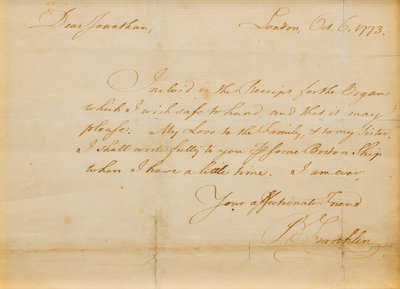 Dear Jonathan, London, Oct. 6. 1773.
Inclos'd is the Receipt for the Organ
which I wish safe to hand, and that it may
please. My Love to the Family, & to my Sister.
I shall write fully to you p some Boston Ship
when I have a little time. I am ever
Your affectionate Friend
B Franklin